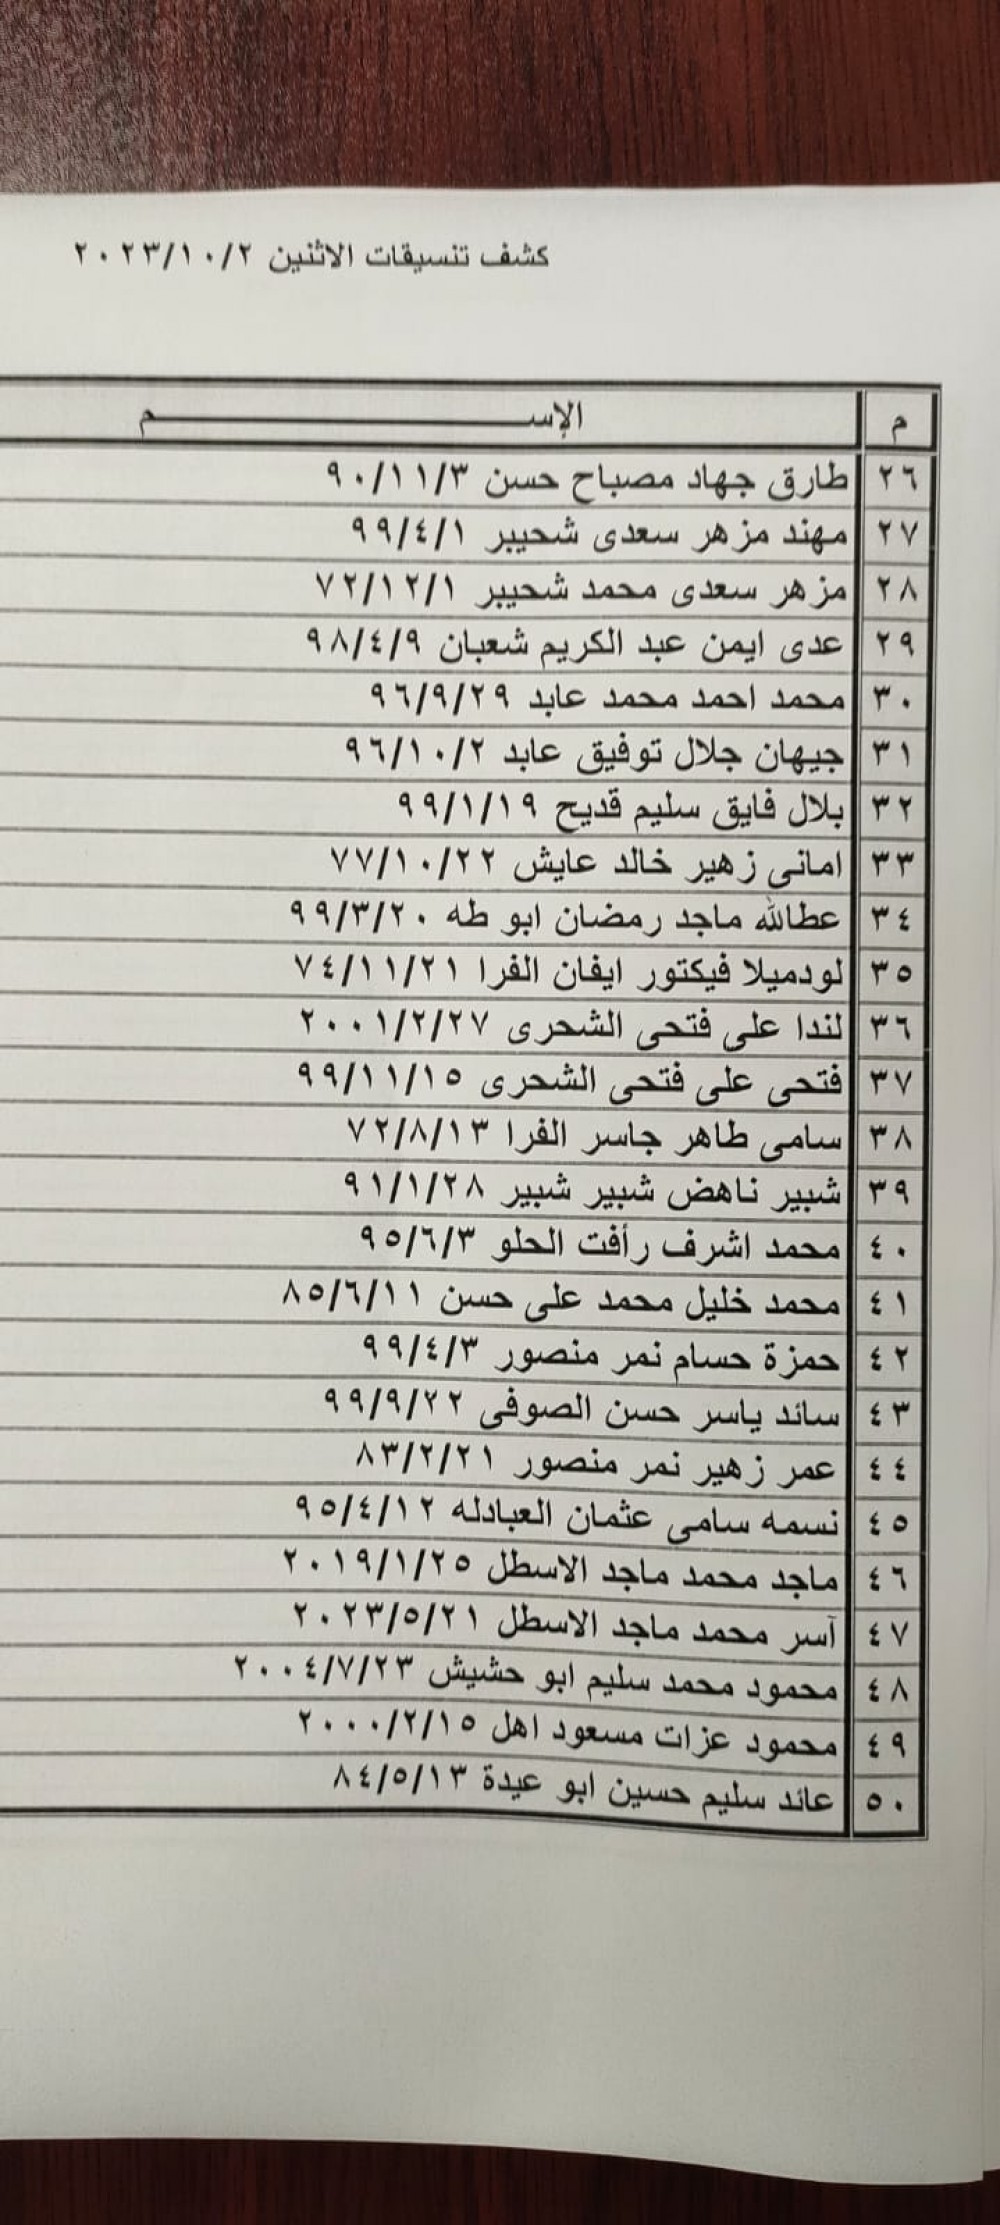 كشف تنسيقات الاثنين ٢٠٢٣/١٠/٢
م الإســـــــــم
٢٦ طارق جهاد مصباح حسن ٩٠/١١/٣
٢٧ مهند مزهر سعدى شحيبر ٩٩/٤/١
٢٨ مزهر سعدى محمد شحيبر ٧٢/١٢/١
٢٩ عدى ايمن عبد الكريم شعبان ٩٨/٤/٩
٣٠ محمد احمد محمد عابد ٩٦/٩/٢٩
٣١ جيهان جلال توفيق عابد ٩٦/١٠/٢
٣٢ بلال فايق سليم قديح ٩٩/١/١٩
٣٣ امانى زهير خالد عايش ٧٧/١٠/٢٢
٣٤ عطالله ماجد رمضان ابو طه ٩٩/٣/٢٠
٣٥ لودميلا فيكتور ايفان الفرا ٧٤/١١/٢١
٣٦ لندا على فتحى الشحرى ٢٠٠١/٢/٢٧
٣٧ فتحى على فتحى الشحرى ٩٩/١١/١٥
٣٨ سامى طاهر جاسر الفرا ٧٢/٨/١٣
٣٩ شبير ناهض شبير شبير ٩١/١/٢٨
٤٠ محمد اشرف رأفت الحلو ٩٥/٦/٣
٤١ محمد خليل محمد على حسن ٨٥/٦/١١
٤٢ حمزة حسام نمر منصور ٩٩/٤/٣
٤٣ سائد ياسر حسن الصوفى ٩٩/٩/٢٢
٤٤ عمر زهير نمر منصور ٨٣/٢/٢١
٤٥ نسمه سامى عثمان العبادله ٩٥/٤/١٢
٤٦ ماجد محمد ماجد الاسطل ٢٠١٩/١/٢٥
٤٧ آسر محمد ماجد الاسطل ٢٠٢٣/٥/٢١
٤٨ محمود محمد سليم ابو حشيش ٢٠٠٤/٧/٢٣
٤٩ محمود عزات مسعود اهل ٢٠٠٠/٢/١٥
٥٠ عائد سليم حسين ابو عيدة ٨٤/٥/١٣